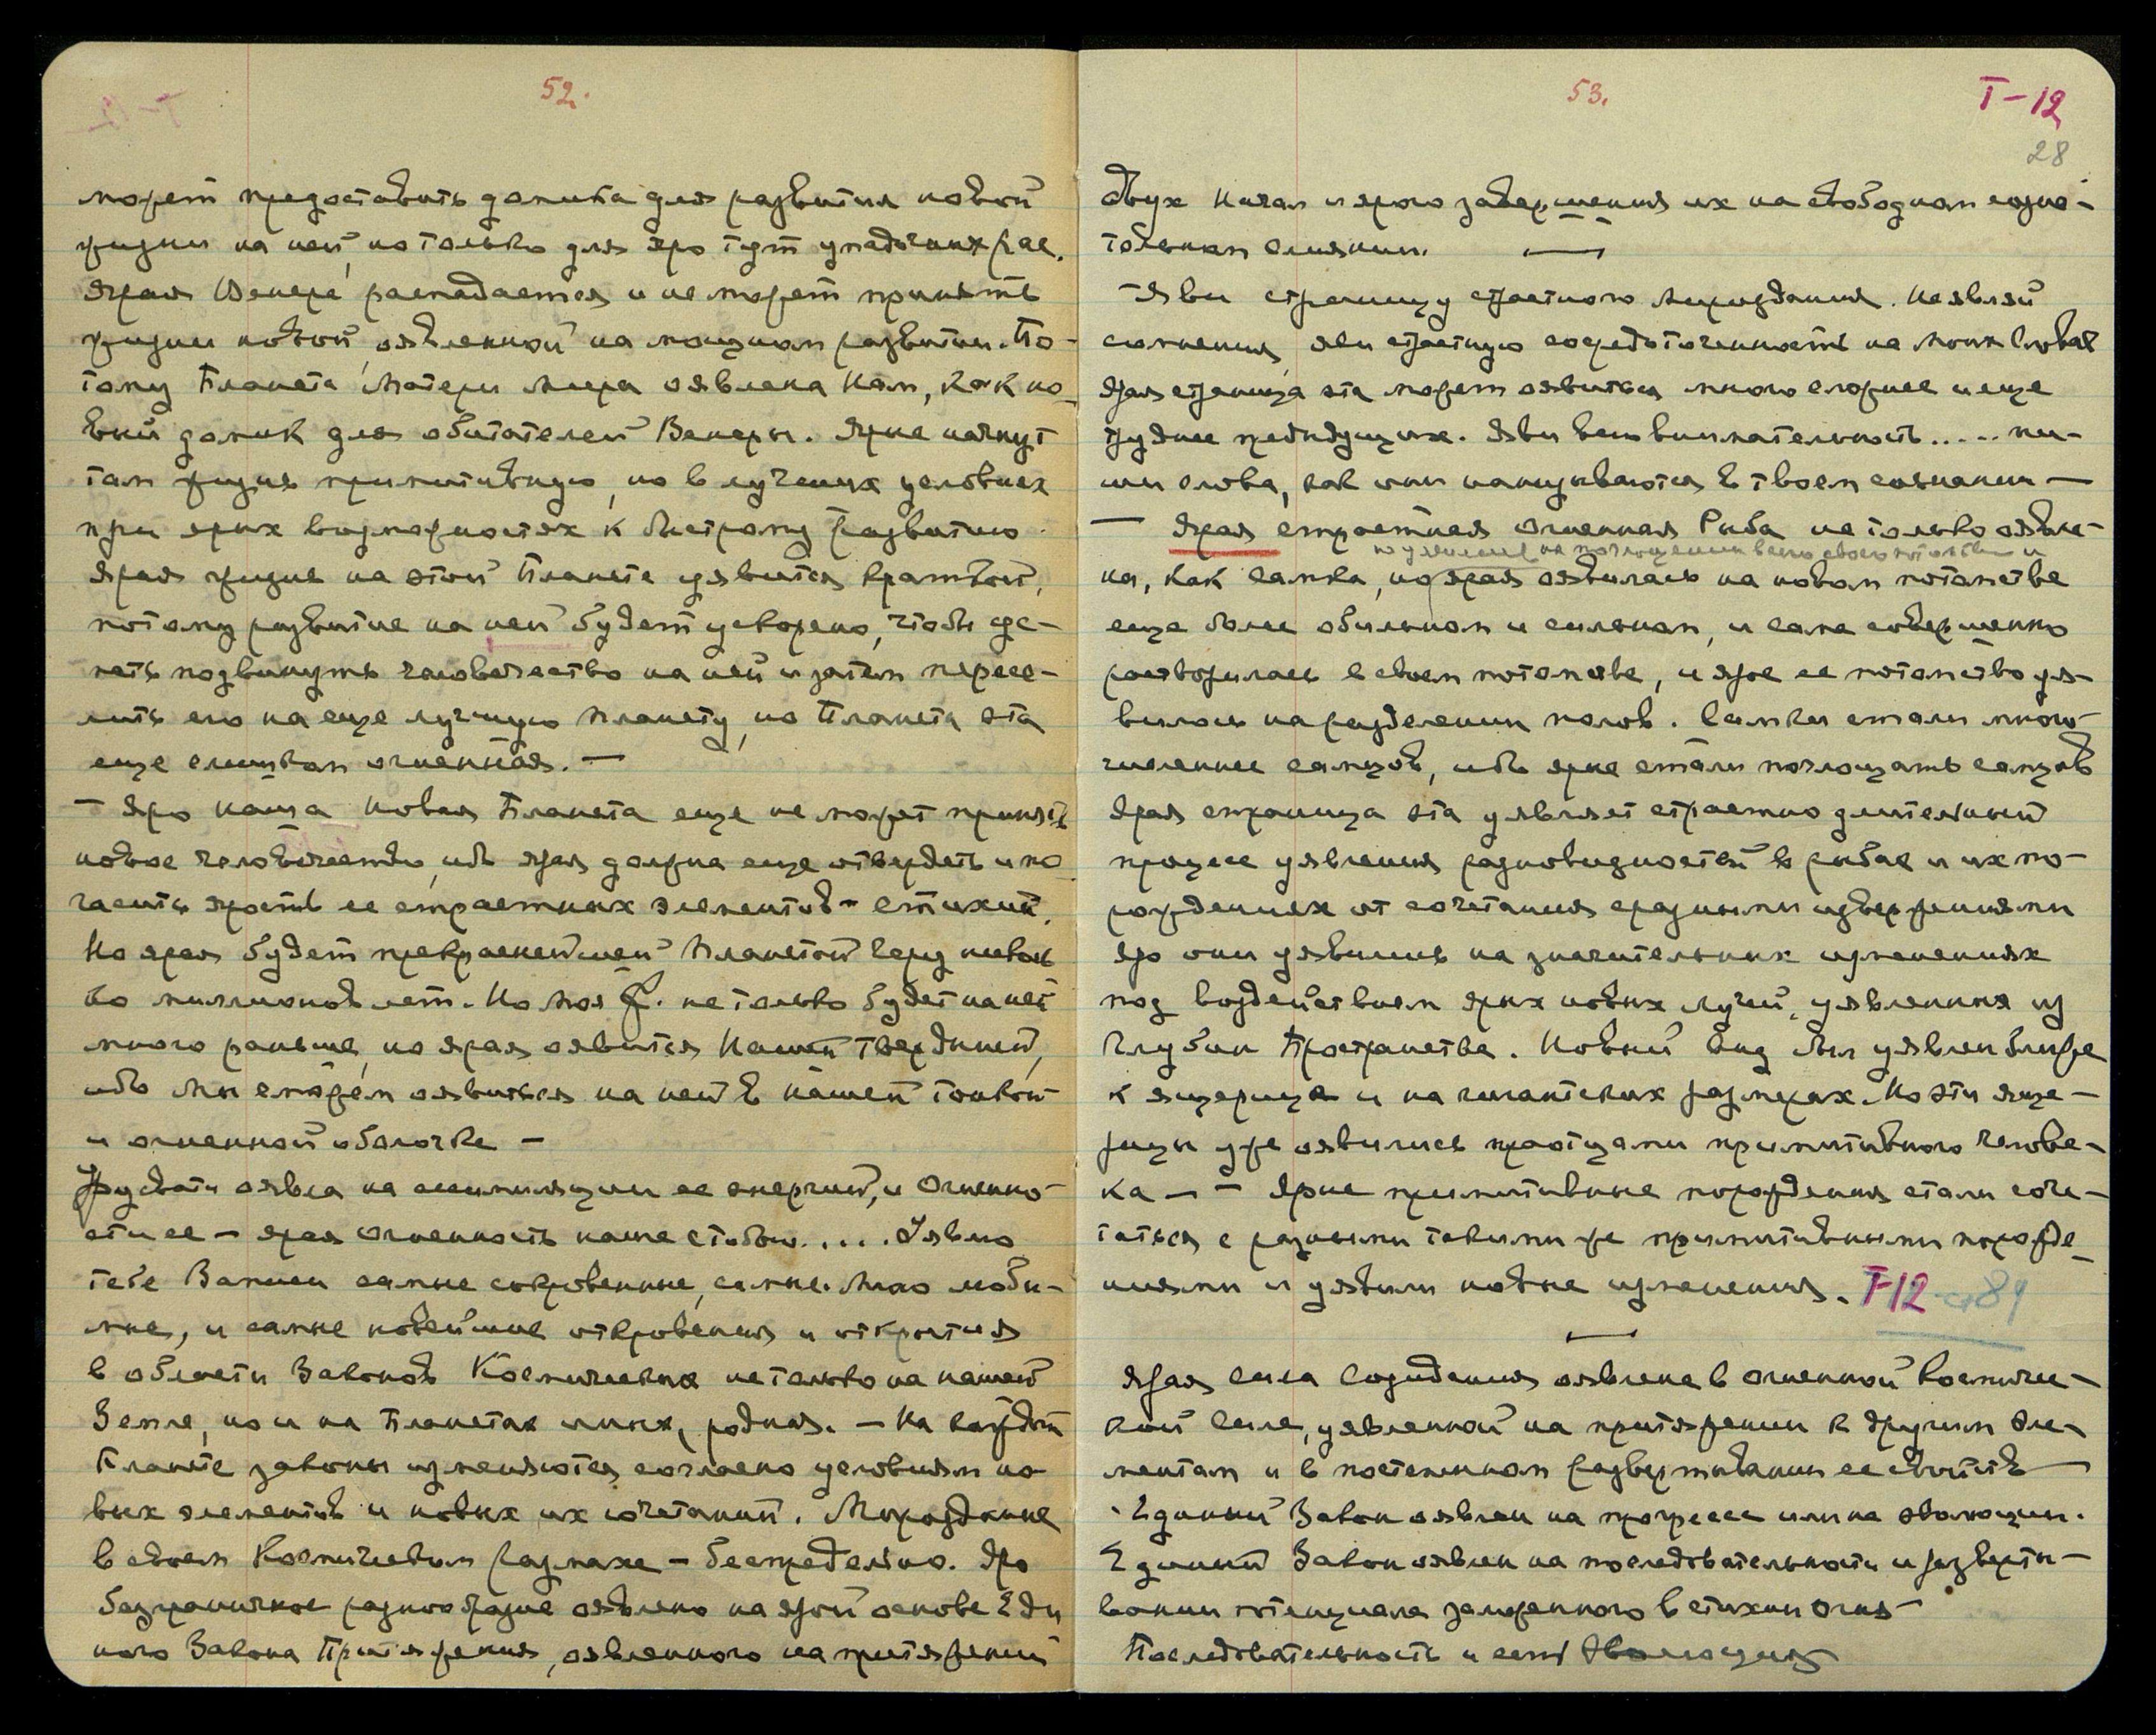 52.
может предоставить домика для развития новой
жизни на ней, но только для яро тут упадочных рас.
Ярая Венера распадается и не может принять
жизни новой, оявленной на мощном развитии. По-
тому Планета Матери Мира оявлена Нам, как но-
вый домик для обитателей Венеры. Ярые начнут
там жизнь примитивную, но в лучших условиях
при ярых возможностях к быстрому развитию.
Ярая жизнь на этой Планете уявится краткой,
потому развитие на ней будет ускорено, чтобы
подвинуть человечество на ней и затем пересе-
лить его на еще лучшую планету, но Планета эта
еще слишком огненная. —
— Яро наша Новая Планета еще не может принять
новое человечество, ибо ярая должна еще отвердеть и по-
гасить ярость ее страстных элементов - стихий.
Но ярая будет прекраснейшей Планетой через несколь-
ко миллионов лет. Но моя не только будет на ней
много раньше, но ярая оявится Нашей Твердыней,
ибо Мы сможем оявиться на ней в нашей тонкой
и огненной оболочке —
Урусвати оявла на ассимиляции ее энергий, и Огненно-
сти ее — ярая Огненность наша с тобою.... Уявлю
тебе Записи самые сокровенные, самые Мною люби-
мые, и самые новейшие откровения и открытия
в области Законов Космических не только на нашей
Земле, но и на Планетах иных, родная. — На каждой
Планете законы изменяются согласно условиям но-
вых элементов и новых их сочетаний. Мироздание
в своем Космическом размахе — беспредельно. Яро
безграничное разнообразие оявлено на ярой основе Еди-
ного Закона Притяжения, оявленного на притяжении
53.
T-12
28
двух Начал и ярого завершения их на свободном созна-
тельном слиянии. —
— Яви страницу страстного Мироздания. Не являй
сомнения, яви страстную сосредоточенность на Моих Словах
Ярая страница эта может оявиться много сложнее и еще
труднее предыдущих. Яви всю внимательность..... пи-
ши слова, как они нанизываются в твоем сознании —
— Ярая страстная огненная Рыба не только оявле-
на, как самка, но ярая оявилась на новом потомстве
еще более обильном и сильном, и сама совершенно
растворилась в своем потомстве, и ярое ее потомство уя-
вилось на разделении полов. Самки стали много-
численнее самцов, ибо ярые стали поглощать самцов
Ярая страница эта уявляет страстно длительный
процесс уявления разновидностей в рыбах и их по-
рождениях от сочетания с разными извержениями
яро они уявились на значительных изменениях
под воздействием ярых новых лучей, уявленных из
Глубин Пространства. Новый вид был уявлен ближе
к ящерице и на гигантских размерах. Но эти яще-
рицы уже оявились праотцами примитивного челове-
ка — — Ярые примитивные порождения стали соче-
таться с разными такими же примитивными порожде-
ниями и уявили новые изменения. T-12
—
Ярая сила Созидания оявлена в огненной Космиче-
ской Силе, уявленной на притяжении к другим эле-
ментам и в постепенном развертывании ее свойств —
Единый Закон оявлен на прогрессе или на эволюции.
Единый Закон оявлен на последовательности и разверты-
вании потенциала заложенного в стихии огня —
Последовательность и есть Эволюция